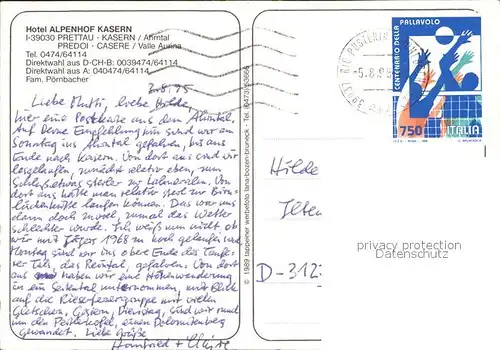 Hotel ALPENHOF KASERN
I-39030 PRETTAU - KASERN / Ahrntal
PREDOI - CASERE / Valle Aurina
Tel. 0474/64114
Direktwahl aus D-CH-B: 0039474/64114
Direktwahl aus A: 040474/64114
Fam. Pörnbacher
2.8.95
Liebe Mutti, liebe Hilde,
hier eine Postkarte aus dem Ahrntal.
Auf Deine Empfehlung hin sind wir am
Sonntag ins Ahrntal gefahren, bis ans
Ende nach Kasern. Von dort aus sind wir
losgelaufen, zunächst relativ eben, zum
Schluß etwas steiler zur Lahneralm. Von
dort aus hätte man relativ steil zur Birn-
lückenhütte laufen können. Das war uns
dann doch zuviel, zumal das Wetter
schlechter wurde. Ich weiß nun nicht, ob
wir mit 1968 so hoch gelaufen sind.
Montag sind wir ins obere Ende des Taufe-
rer Tals, das Reintal, gefahren. Von dort
aus haben wir eine Höhenwanderung
in ein Seitental unternommen, mit Blick
auf die Rieserfernergruppe mit vielen
Gletschern. Gestern, Dienstag, sind wir rund
um den Peitlerkofel, einen Dolomitenberg
gewandert. Liebe Grüße
© 1989 tappeiner werbefoto lana-bozen-bruneck - Tel. 0473/53666
5.8.95
CENTENARIO DELLA
PALLAVOLO
750
ITALIA
Hilde
D-312
privacy protection
Datenschutz